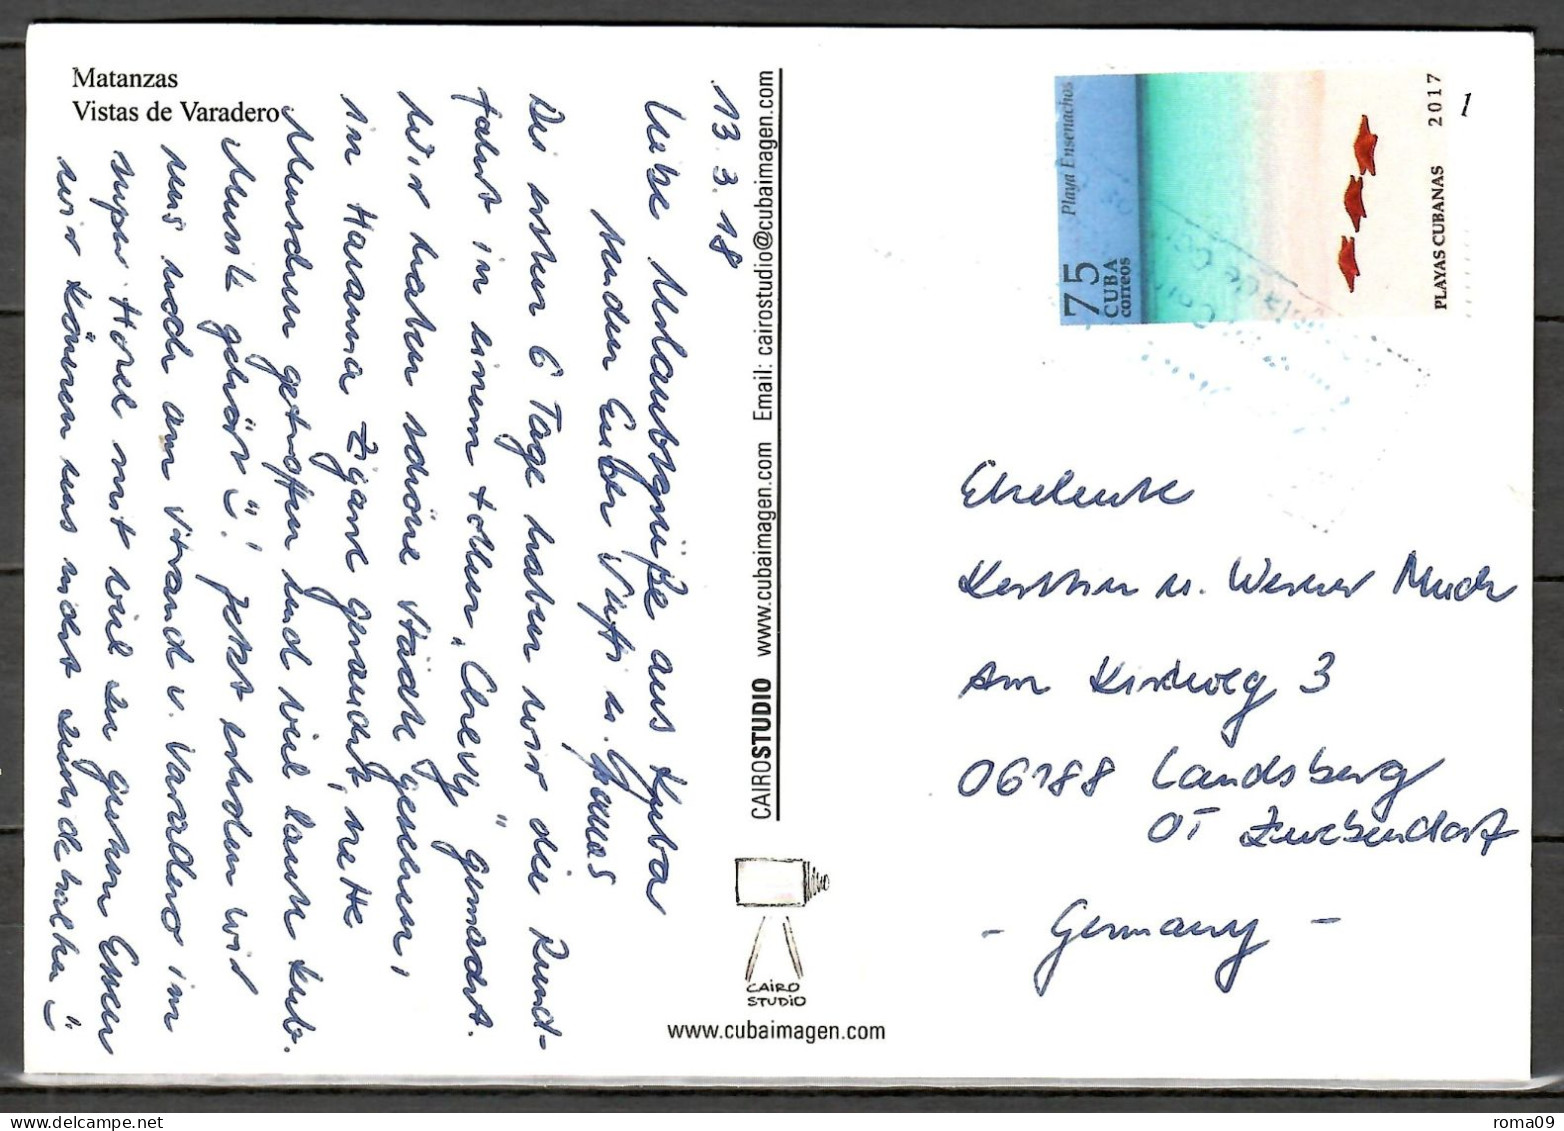 Matanzas
Vistas de Varadero
13.3.18
Liebe Urlaubsgrüße aus Kuba
senden Euch
Die ersten 6 Tage haben wir die Rund-
fahrt in einem tollen „Chevy" gemacht.
Wir haben schöne Städte gesehen,
in Havanna Zigarre geraucht, nette
Menschen getroffen und viel laute kub.
Musik gehört ! Jetzt erholen wir
uns noch am Strand v. Varadero im
super Hotel mit viel zu gutem Essen
wir können uns nicht zurückhalten
CAIROSTUDIO www.cubaimagen.com Email: cairostudio@cubaimagen.com
CAIRO
STUDIO
www.cubaimagen.com
75
CUBA
correos
Playa Ensenachos
PLAYAS CUBANAS 2017
1
Eheleute
Kerstin u. Werner Much
Am Kirchweg 3
06188 Landsberg
OT Zwebendorf
- Germany -
www.delcampe.net
roma09